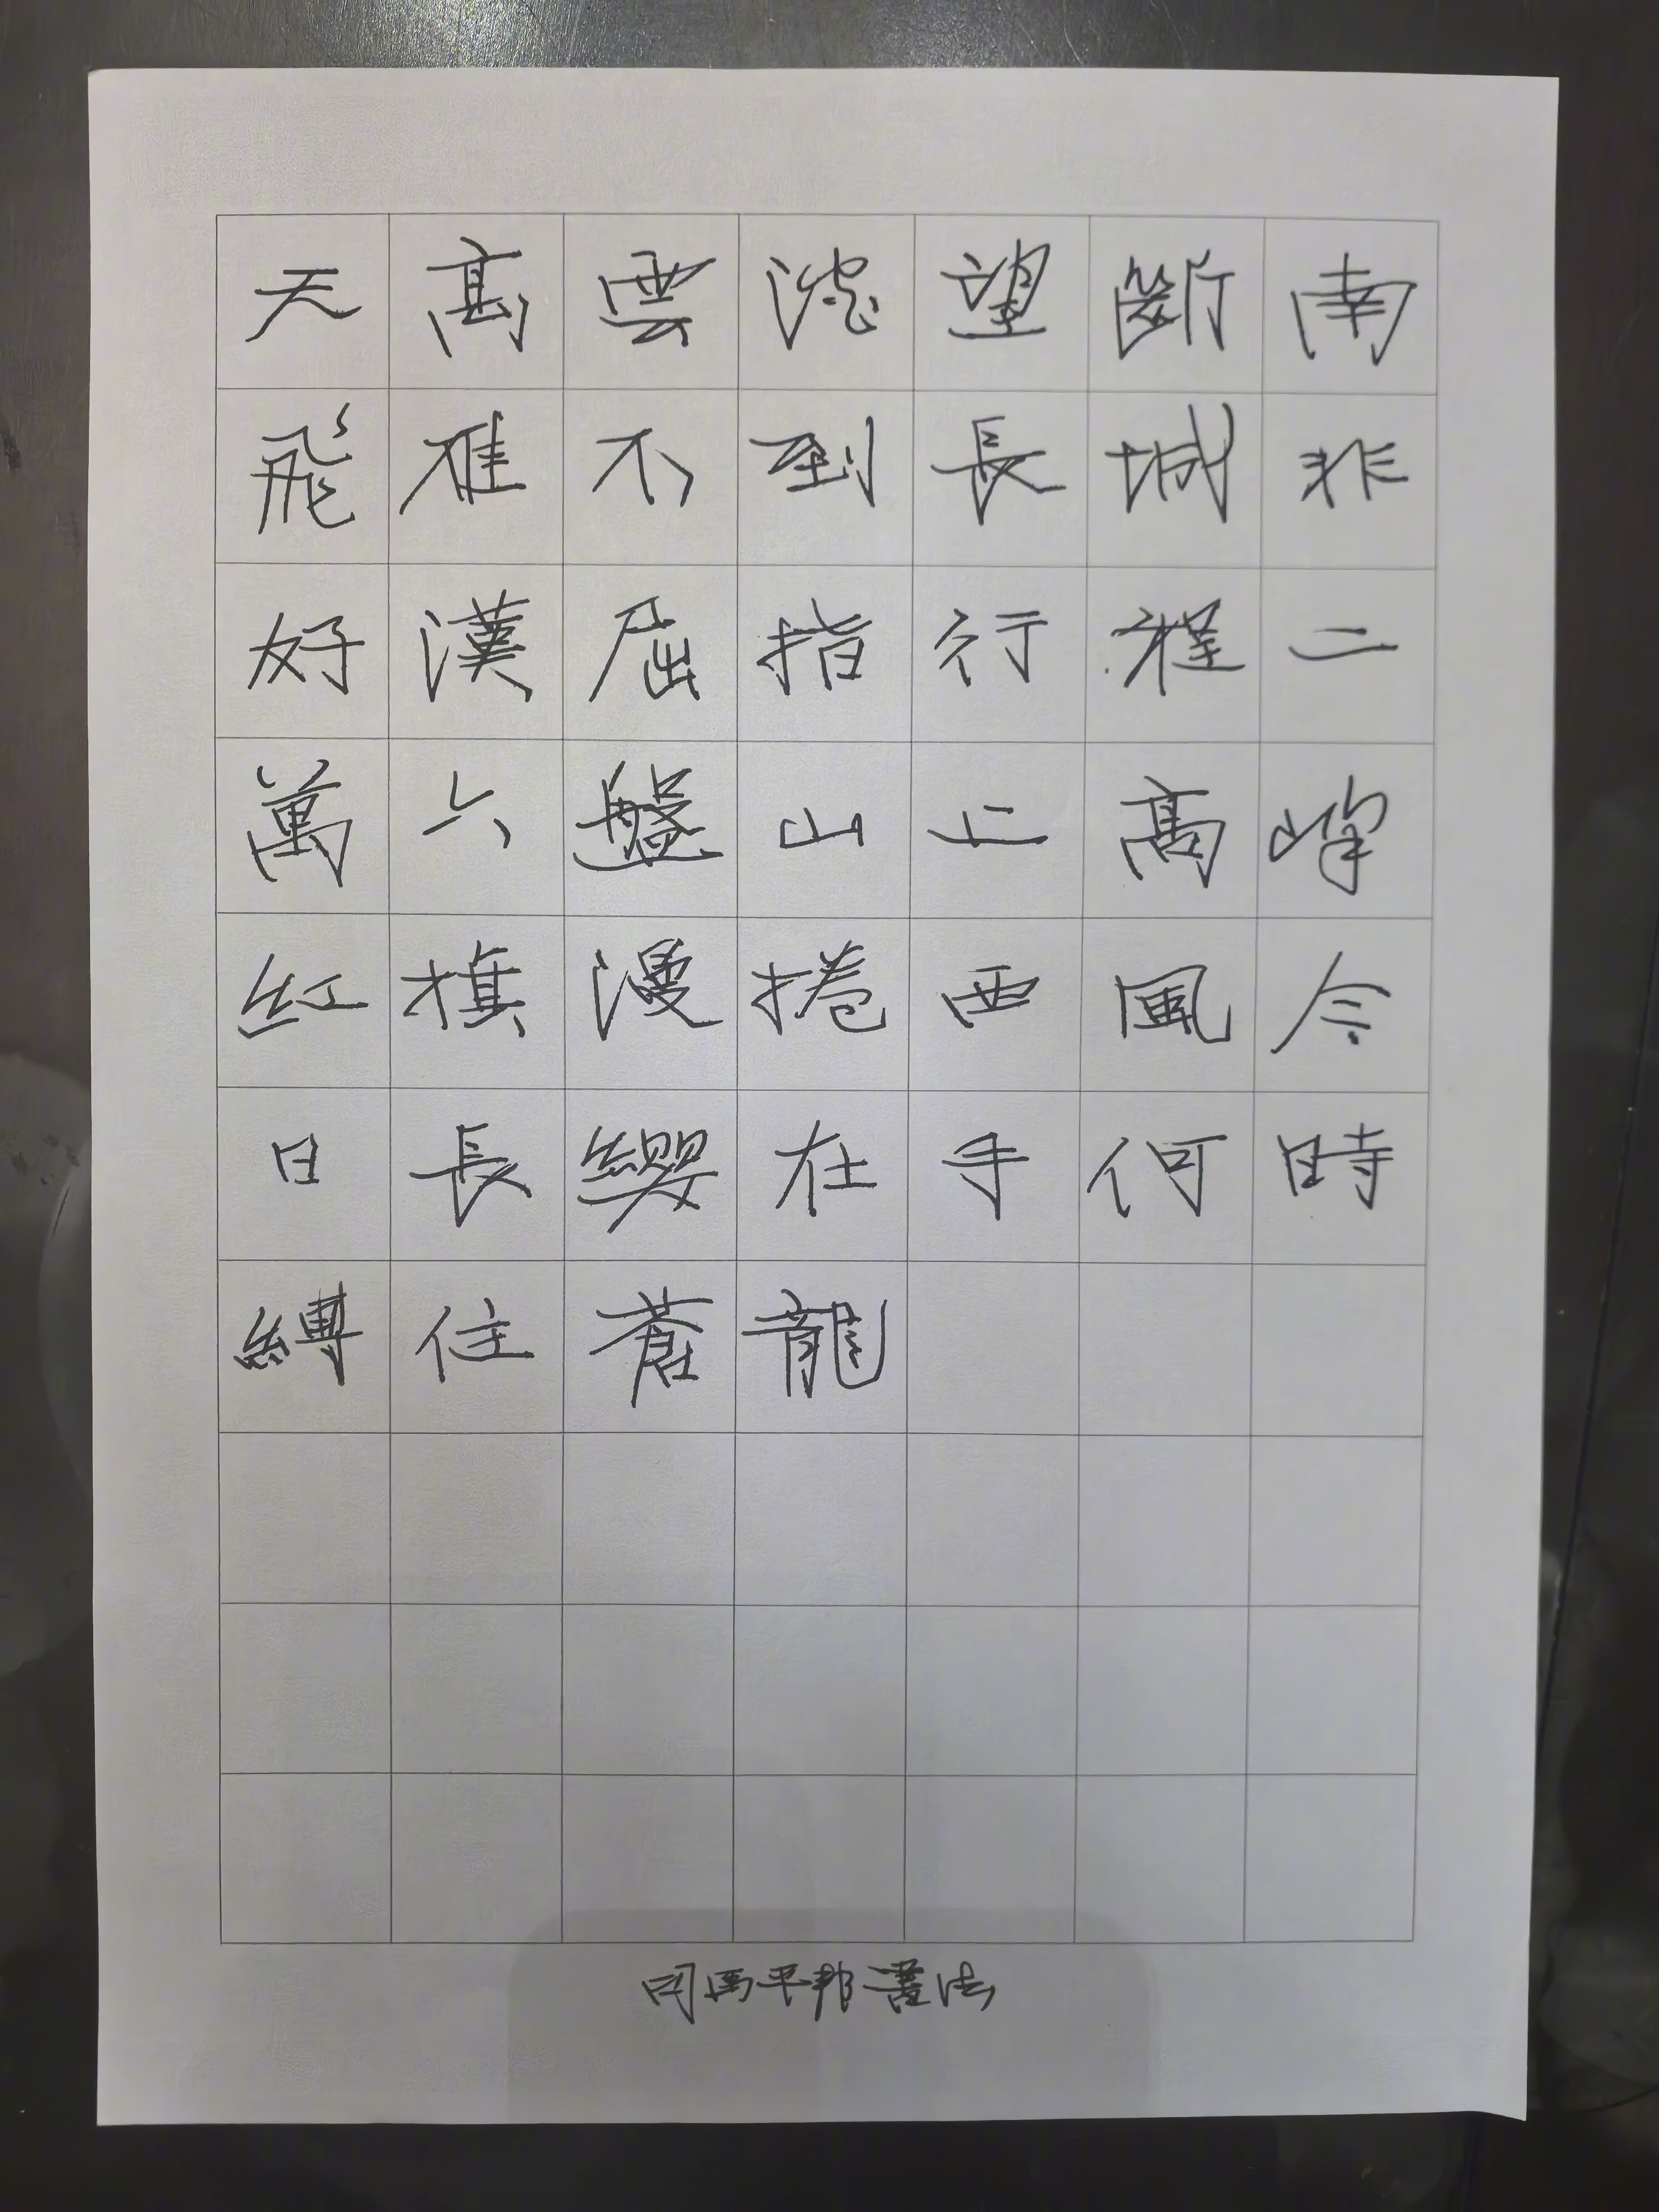 天高雲淡望斷南
飛雁不到長城非
好漢屈指行程二
萬六盤山上高峰
紅旗漫捲西風今
日長纓在手何時
縛住蒼龍
司馬平邦書法